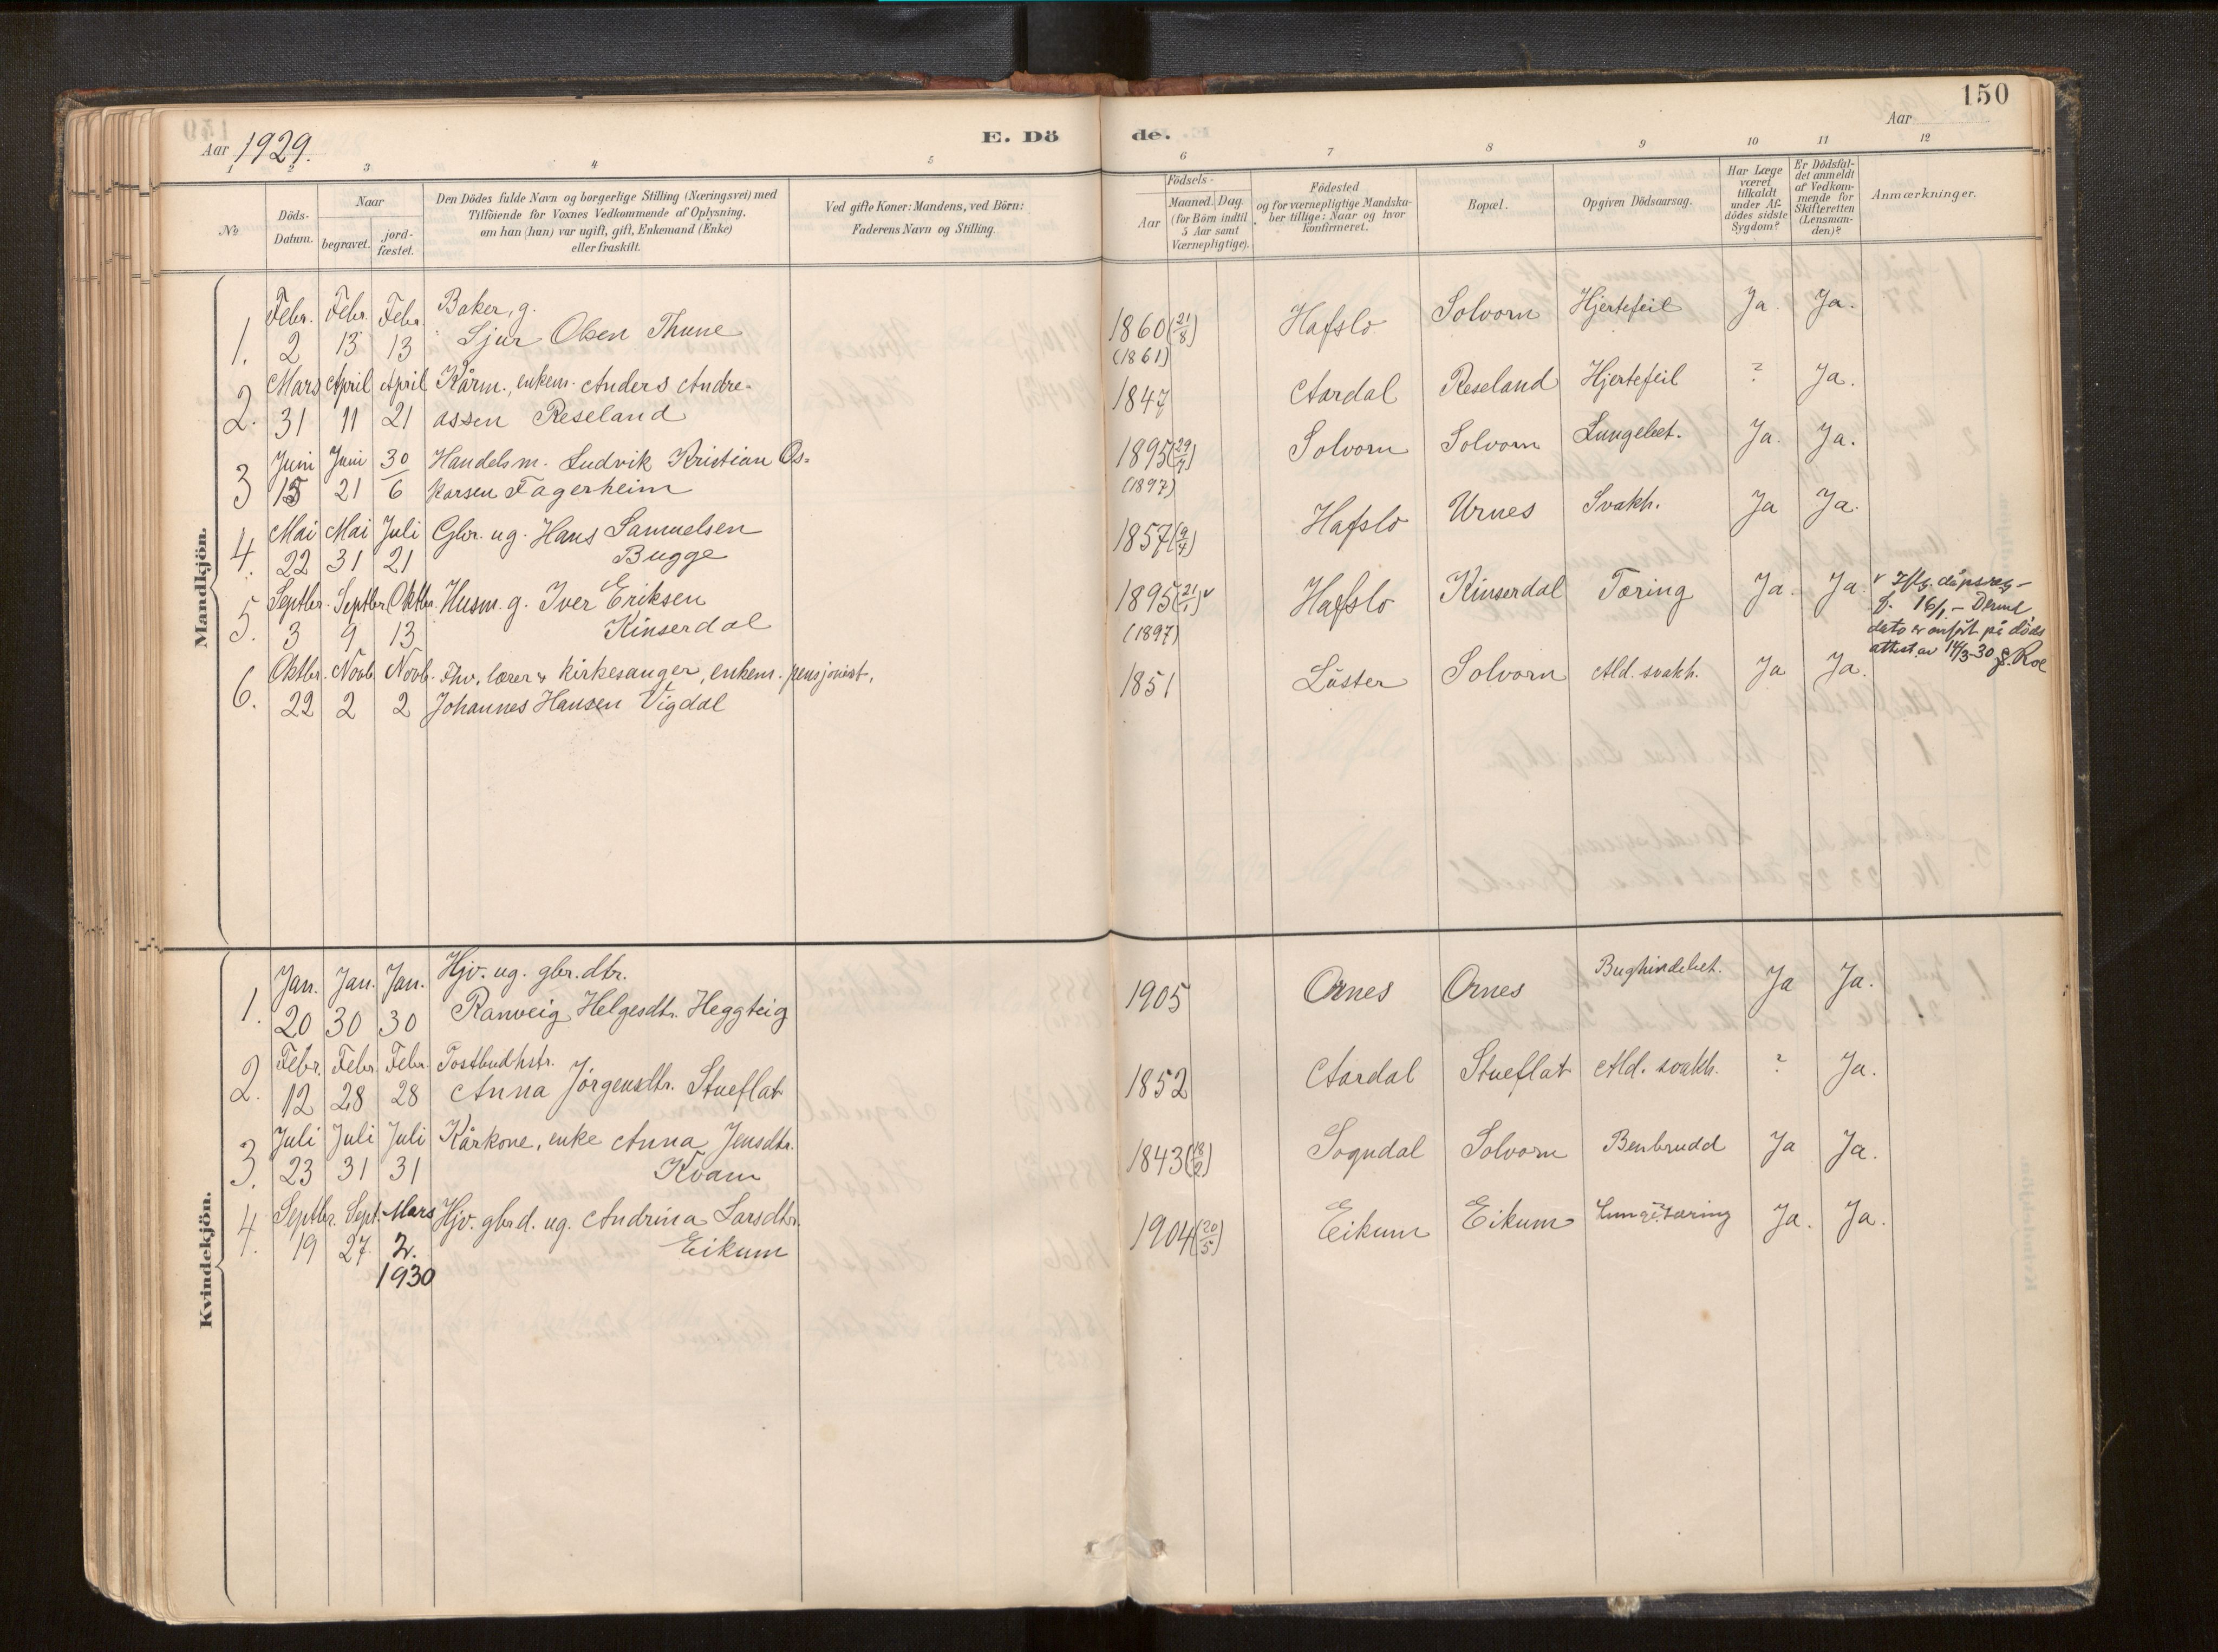 150
Aar 1929.
E. Döde.
Aar
1 2 3 4 5 6 7 8 9 10 11 12
No
Döds-Datum.
Naar
begravet.
jord-fæstet.
Den Dödes fulde Navn og borgerlige Stilling (Næringsvei) med
Tilföiende for Voxnes Vedkommende af Oplysning,
om han (hun) var ugift, gift, Enkemand (Enke)
eller fraskilt.
Ved gifte Koner: Mandens, ved Börn:
Faderens Navn og Stilling.
Födsels-
Aar
Maaned. Dag.
(for Börn indtil
5 Aar samt
Værnepligtige).
Födested
og for værnepligtige Mandska-
ber tillige: Naar og hvor
konfirmeret.
Bopæl.
Opgiven Dödsaarsag.
Har Læge
været
tilkaldt
under Af-
dödes sidste
Sygdom?
Er Dödsfal-
det anmeldt
af Vedkom-
mende for
Skifteretten
(Lensman-
den)?
Anmærkninger.
Mandkjön.
Febr. Febr. Febr. Baker, g.
1. 2 13 13 Sjur Olsen Thune 1860 (21/8) Hafslo Solvorn Hjertefeil Ja Ja.
(1861)
Mars April April Kårm., enkem. Anders Andre-
2. 31 11 21 assen Reseland 1847 Aardal Reseland Hjertefeil ? Ja.
Juni Juni 30 Handelsm. Ludvik Kristian Os-
3 15 21 6 karsen Fagerheim 1895 (29/7) Solvorn Solvorn Lungebet. Ja. Ja.
(1897)
Mai Mai Juli Gbr. ug. Hans Samuelsen
4. 22 31 21 Bugge 1857 (9/4) Hafslo Urnes Svakh. Ja Ja.
Septbr. Septbr. Oktbr. Husm. g. Iver Eriksen
5. 3 9 13 Kinserdal 1895 (21/1) v Hafslo Kinserdal Tæring Ja. Ja.
(1897)
v Iflg. dåpsreg-
f. 16/1 - Denne
dato er anfört på döds
attest av 14/3-30 Roe
Oktbr. Novb. Novb. Fhv. lærer & kirkesanger, enkem. pensjonist,
6. 22 2 2 Johannes Hansen Vigdal 1851 Lüster Solvorn Ald. svakh. Ja Ja.
Kvindekjön.
Jan. Jan. Jan. Hjv. ug. gbr. dtr.
1. 20 30 30 Ranveig Helgesdtr. Heggteig 1905 Ornes Ornes Bughindebet. Ja Ja.
Febr. Febr. Febr. Postbudhstr.
2. 12 28 28 Anna Jörgensdtr. Stueflat 1852 Aardal Stueflat Ald. svakh. ? Ja.
Juli Juli Juli Kårkone, enke Anna Jensdtr.
3. 23 31 31 Kvam 1843 (18/2) Sogndal Solvorn Benbrudd Ja Ja.
Septbr. Sept. Mars Hjv. gbrd. ug. Andrina Larsdtr.
4. 19 27. 2. Eikum 1904 (20/5) Eikum Eikum Lungetæring Ja. Ja.
1930